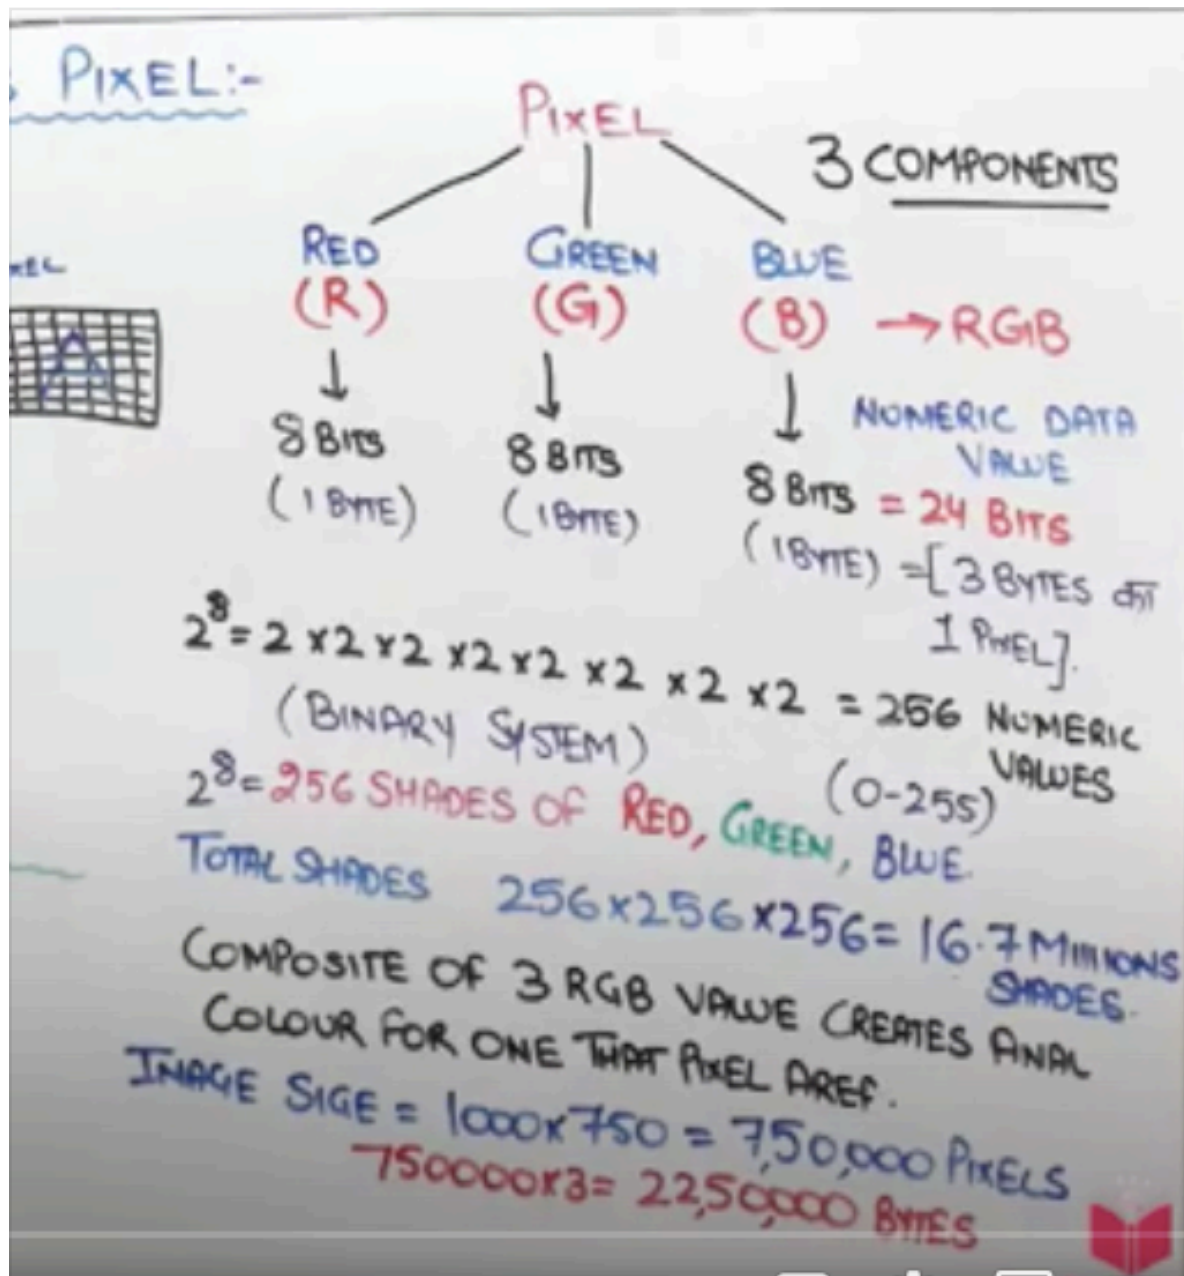 PIXEL:-
PIXEL
3 COMPONENTS
RED GREEN BLUE
(R) (G) (B) → RGB
8 BITS 8 BITS 8 BITS = 24 BITS
NUMERIC DATA
VALUE
(1 BYTE) (1 BYTE) (1 BYTE) = [3 BYTES का
1 PIXEL].
2⁸ = 2 × 2 × 2 × 2 × 2 × 2 × 2 × 2 = 256 NUMERIC
VALUES
(BINARY SYSTEM) (0-255)
2⁸ = 256 SHADES OF RED, GREEN, BLUE.
TOTAL SHADES 256×256×256 = 16.7 MIllIONS
SHADES.
COMPOSITE OF 3 RGB VALUE CREATES
COLOUR FOR ONE THAT PIXEL
IMAGE SIGE = 1000×750 = 7,50,000 PIXELS
750000×3 = 22,50,000 BYTES